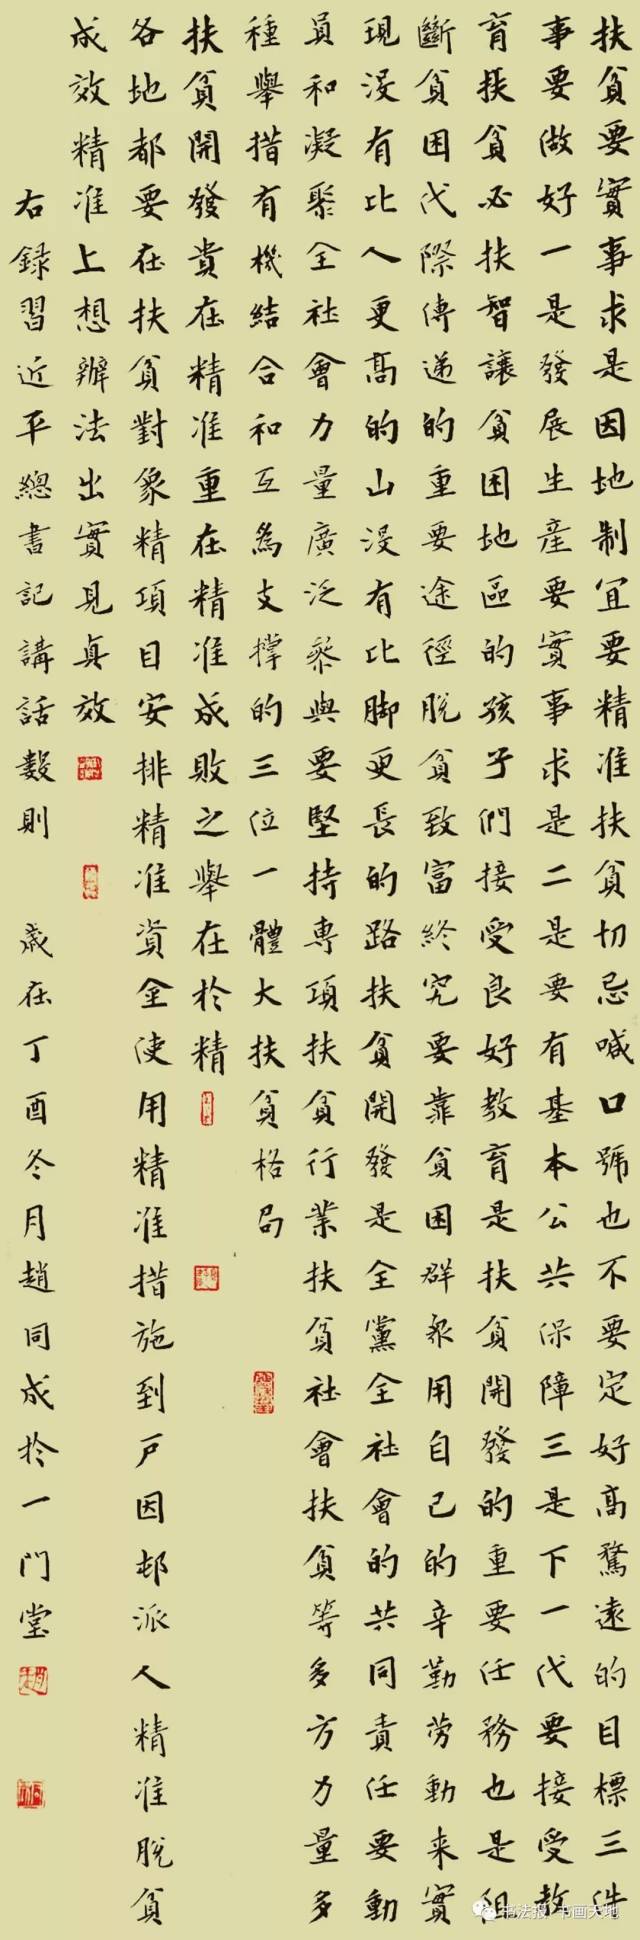 扶貧要實事求是因地制宜要精准扶貧切忌喊口號也不要定好高騖遠的目標三件
事要做好一是發展生產要實事求是二是要有基本公共保障三是下一代要接受教
育扶貧必扶智讓貧困地區的孩子們接受良好教育是扶貧開發的重要任務也是阻
斷貧困代際傳遞的重要途徑脫貧致富終究要靠貧困群眾用自己的辛勤勞動來實
現沒有比人更高的山沒有比腳更長的路扶貧開發是全黨全社會的共同責任要動
員和凝聚全社會力量廣泛參與要堅持專項扶貧行業扶貧社會扶貧等多方力量多
種舉措有機結合和互為支撐的三位一體大扶貧格局
扶貧開發貴在精准重在精准成敗之舉在於精
各地都要在扶貧對象精項目安排精准資金使用精准措施到戶因邨派人精准脫貧
成效精准上想辦法出實見真效
右錄習近平總書記講話數則 歲在丁酉冬月趙同成於一門堂
书法报 书画天地